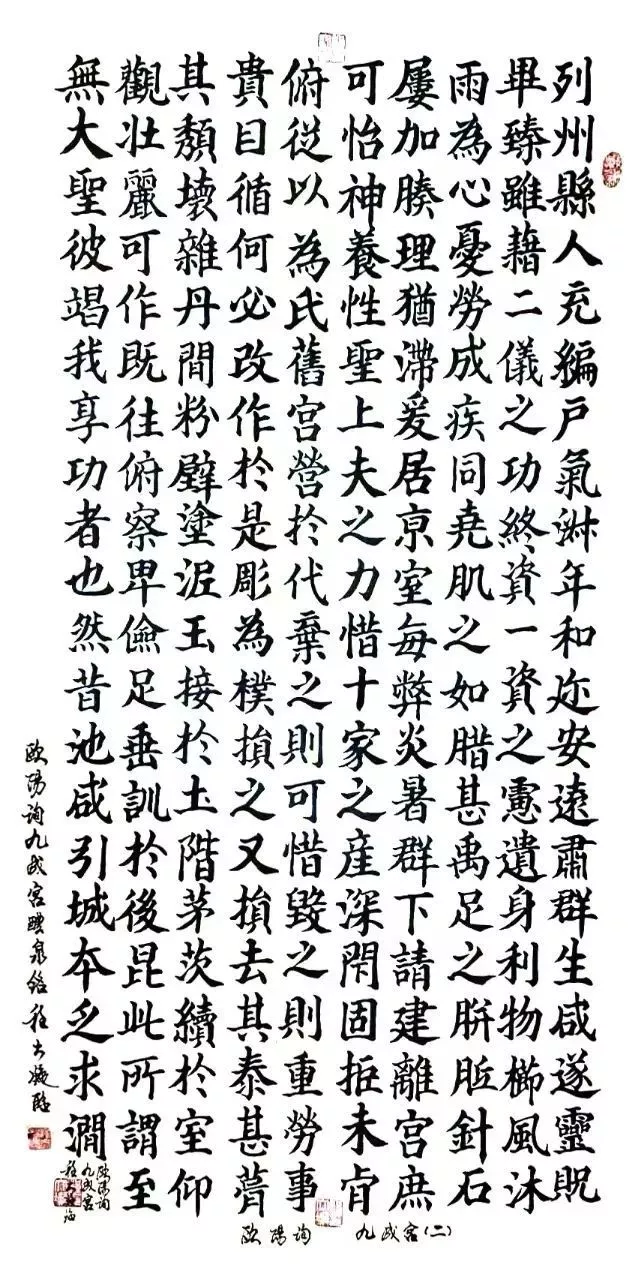 列州縣人充編戶氣淋年和迩安遠肅群生咸遂靈貺
畢臻雖藉二儀之功終資一資之憲遺身利物櫛風沐
雨為心憂勞成疾同堯肌之如腊甚禹足之胼胝針石
屢加腠理猶滯爰居京室每弊炎暑群下請建離宮庶
可怡神養性聖上夫之力惜十家之産深閉固拒未肯
俯從以為氏舊宮營扵代棄之則可惜毀之則重勞事
貴曰循何必改作扵是彫為樸損之又損去其泰甚葺
其頹壞雜丹間粉壁塗泥玉接扵土階茅茨續扵室仰
觀壯麗可作既往俯察卑儉足垂訓扵後昆此所謂至
無大聖彼竭我享功者也然昔池咸引城本乏求澗
歐陽詢九成宮醴泉銘 程大臨
歐陽詢
九成宮
歐陽詢 九成宮(二)